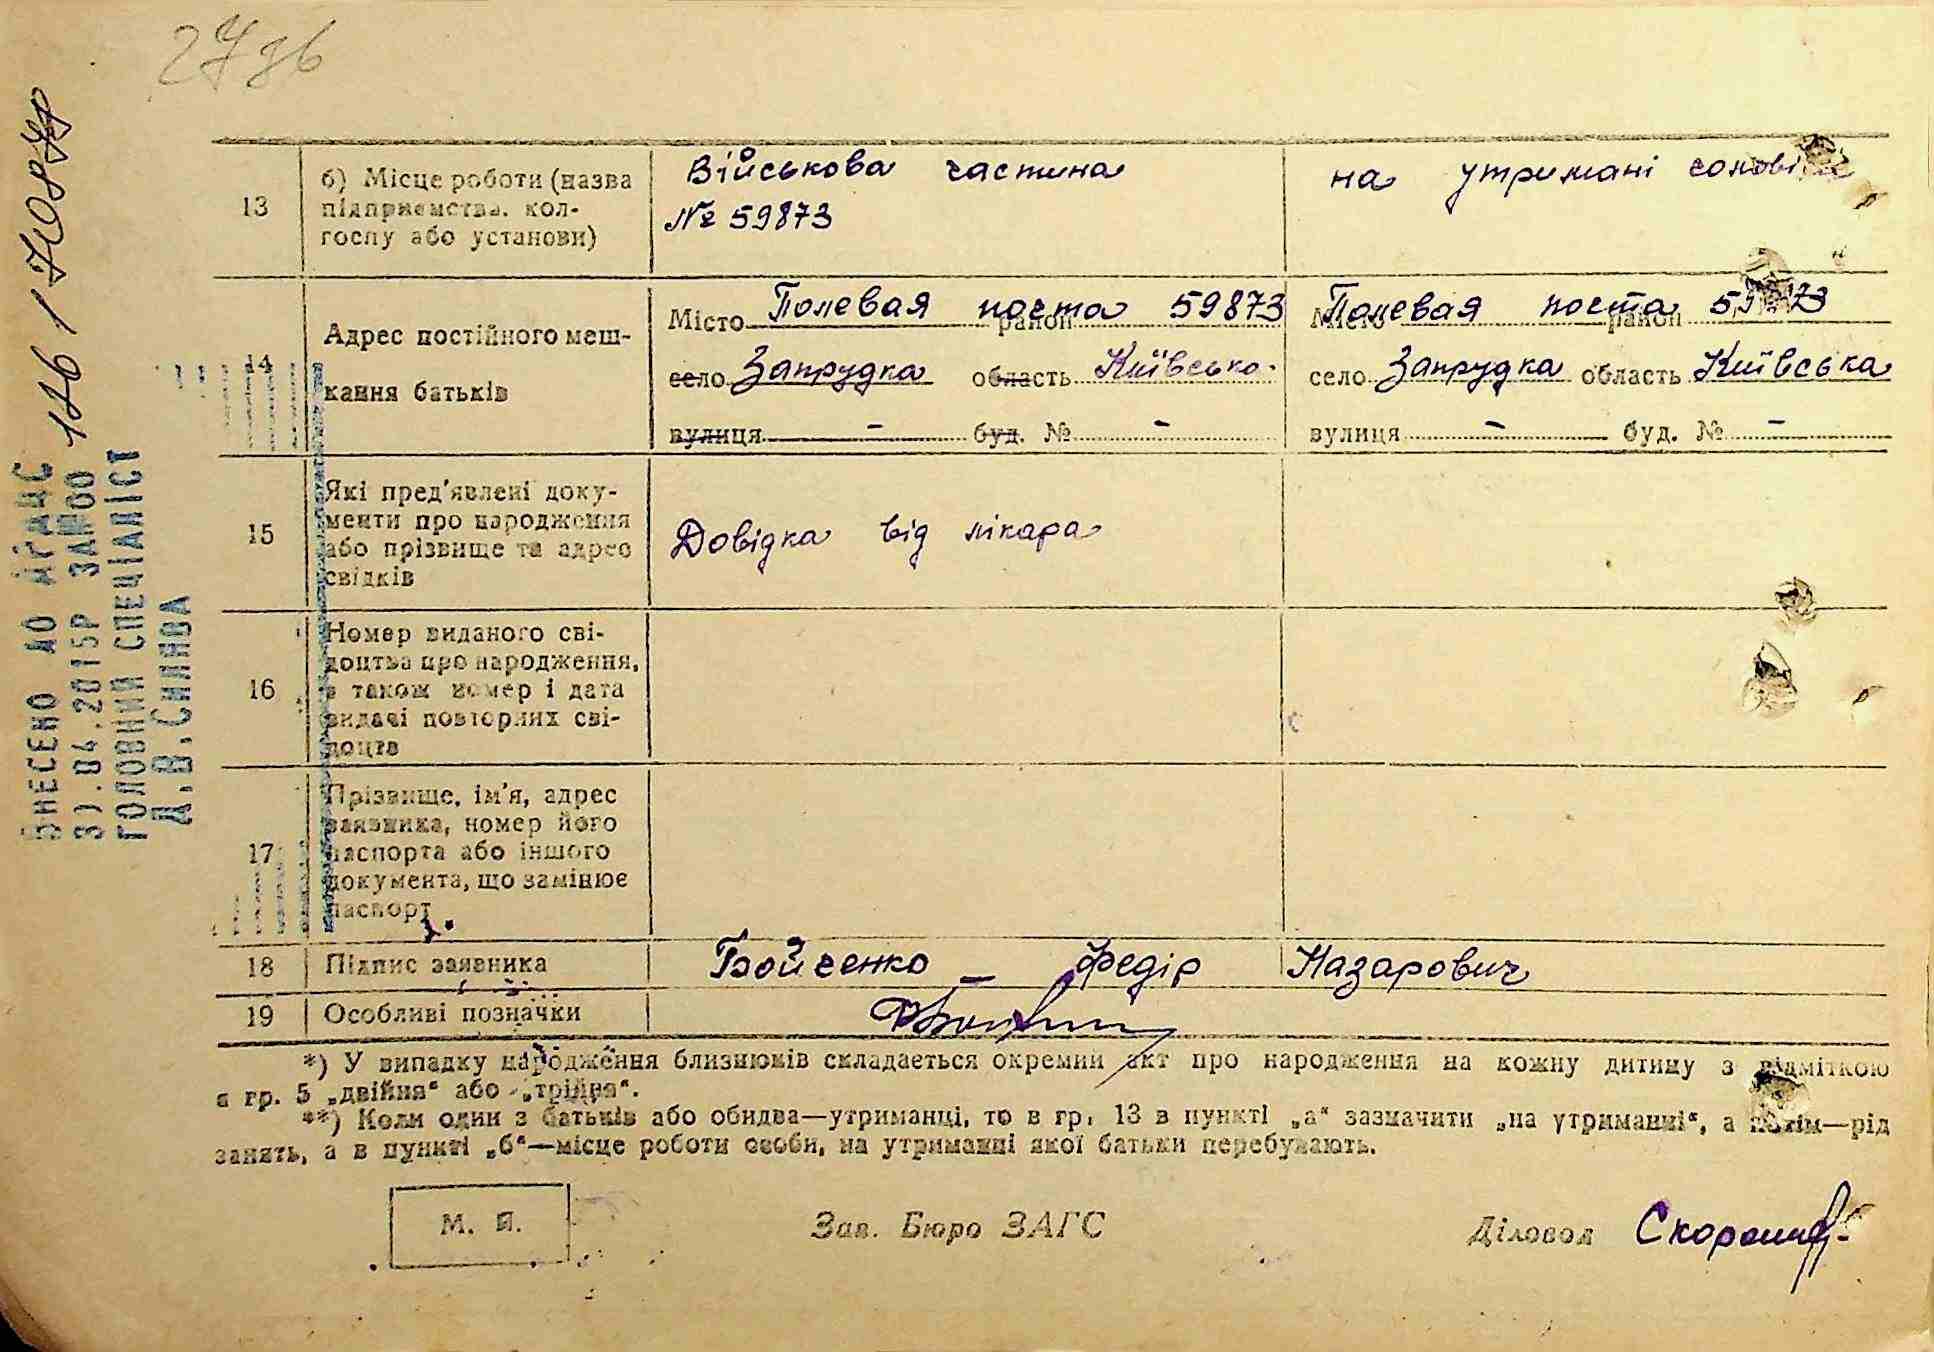 13
б) Місце роботи (назва
підприємства, кол-
госпу або установи)
Військова частина
№ 59873
на утримані
14
Адрес постійного меш-
кання батьків
Місто Полевая почта район 59873
село Запрудка область Київсько-
вулиця - буд. № -
Місто Полевая почта район 59873
село Запрудка область Київська
вулиця - буд. № -
15
Які пред'явлені доку-
менти про народження
або прізвище та адрес
свідків
Довідка від лікара
16
Номер виданого сві-
доцтва про народження,
а також номер і дата
видачі повторних сві-
доцтв
17
Прізвище, ім'я, адрес
заявника, номер його
паспорта або іншого
документа, що замінює
паспорт
18
Підпис заявника
Бойченко Федір Назарович
19
Особливі позначки
*) У випадку народження близнюків складається окремий акт про народження на кожну дитину з відміткою
в гр. 5 „двійня“ або „трійня“.
**) Коли один з батьків або обидва—утриманці, то в гр. 13 в пункті „а“ зазначити „на утриманні“, а потім—рід
занять, а в пункті „б“—місце роботи особи, на утриманні якої батьки перебувають.
М. П.
Зав. Бюро ЗАГС
Діловод
ВНЕСЕНО ДО ДРАЦС
30.04.2015Р ЗА№00
ГОЛОВНИЙ СПЕЦІАЛІСТ
Д.В.СИЛИВА